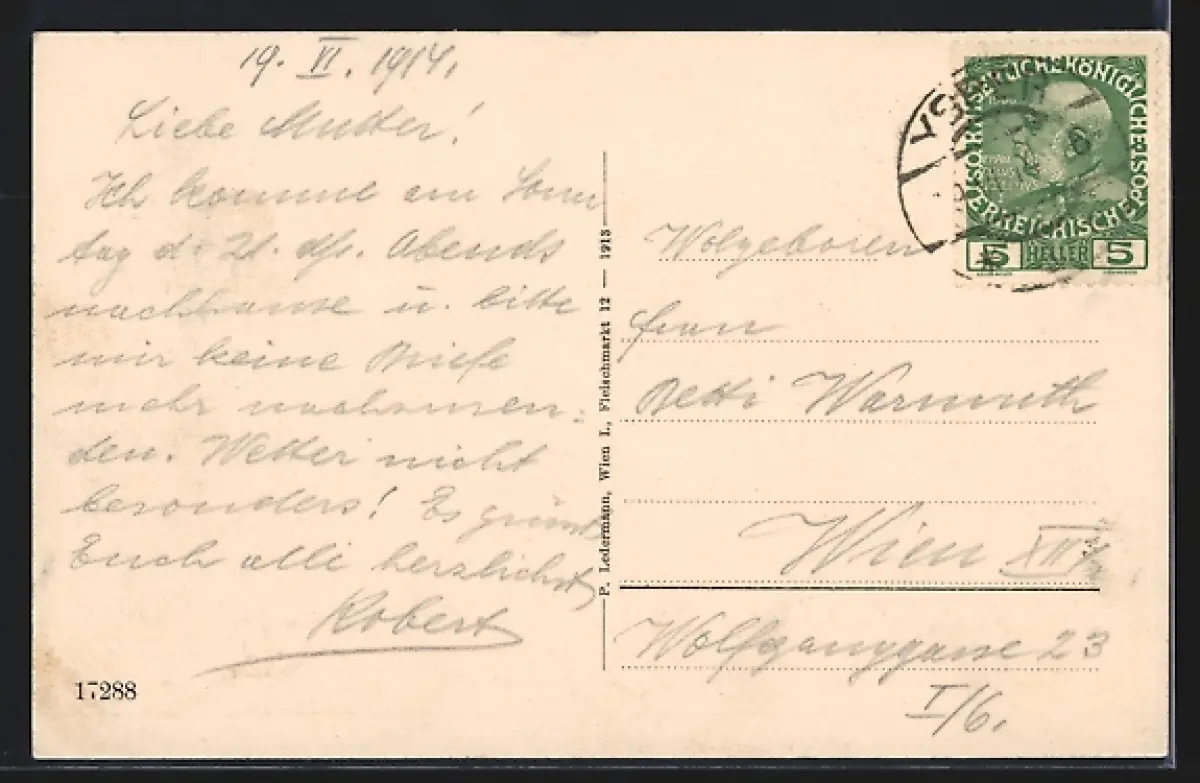 19. VI. 1914.
Liebe Mutter!
Ich komme am Sonn
tag d. 21. dfs. Abends
nachhause u. bitte
mir keine Briefe
mehr nachsenen:
den. Wetter nicht
besonders! Es grüsst
Euch alle herzlichst
Robert
17288
P. Ledermann, Wien I., Fleischmarkt 12 — 1913
KAISERLICHE KÖNIGLICHE ÖSTERREICHISCHE POST
5 HELLER 5
Wolgeboren
Frau
Betti Warmuth
Wien XII/2
Wolfganggasse 23
I/6.